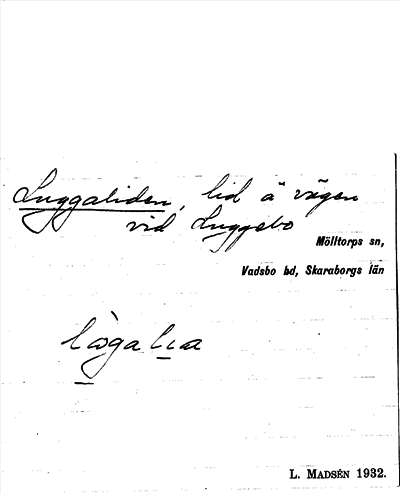 Luggaliden, lid å vägen
vid Luggebo
Mölltorps sn,
Vadsbo hd, Skaraborgs län
L. MADSÉN 1932.